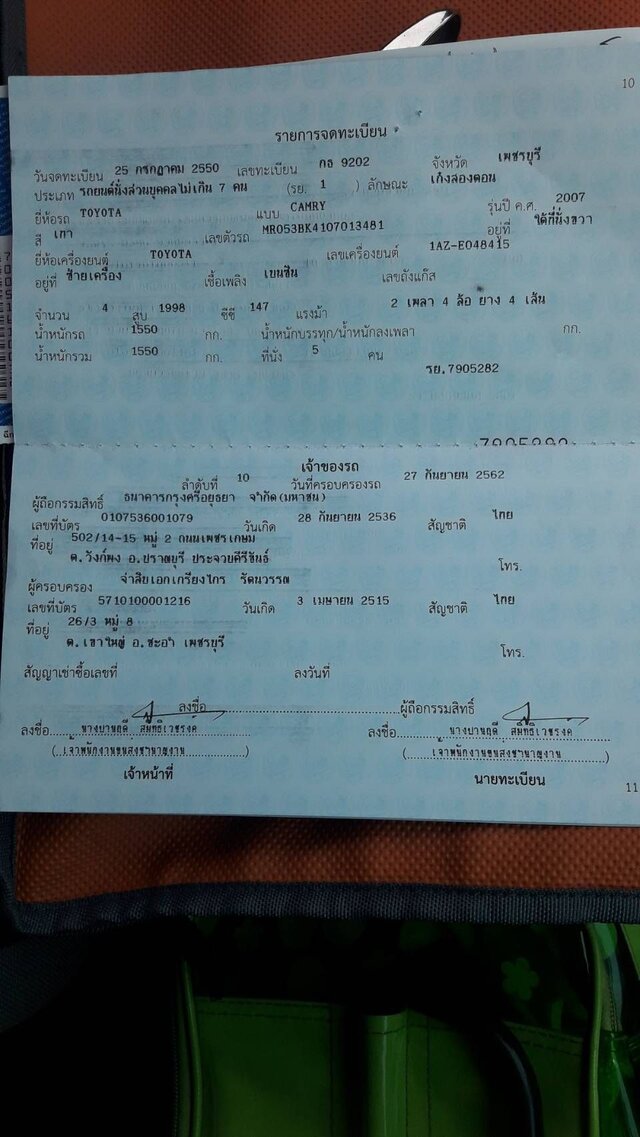 10
รายการจดทะเบียน
วันจดทะเบียน 25 กรกฎาคม 2550 เลขทะเบียน กธ 9202 จังหวัด เพชรบุรี
ประเภท รถยนต์นั่งส่วนบุคคลไม่เกิน 7 คน (รย. 1 ) ลักษณะ เก๋งสองตอน
ยี่ห้อรถ TOYOTA แบบ CAMRY รุ่นปี ค.ศ. 2007
สี เทา เลขตัวรถ MR053BK4107013481 อยู่ที่ ใต้ที่นั่งขวา
ยี่ห้อเครื่องยนต์ TOYOTA เลขเครื่องยนต์ 1AZ-E048415
อยู่ที่ ซ้ายเครื่อง เชื้อเพลิง เบนซิน เลขถังแก๊ส
จำนวน 4 สูบ 1998 ซีซี 147 แรงม้า 2 เพลา 4 ล้อ ยาง 4 เส้น
น้ำหนักรถ 1550 กก. น้ำหนักบรรทุก/น้ำหนักลงเพลา กก.
น้ำหนักรวม 1550 กก. ที่นั่ง 5 คน
รย.7905282
เจ้าของรถ
ลำดับที่ 10 วันที่ครอบครองรถ 27 กันยายน 2562
ผู้ถือกรรมสิทธิ์ ธนาคารกรุงศรีอยุธยา จำกัด(มหาชน)
เลขที่บัตร 0107536001079 วันเกิด 28 กันยายน 2536 สัญชาติ ไทย
ที่อยู่ 502/14-15 หมู่ 2 ถนนเพชรเกษม
ต.วังก์พง อ.ปราณบุรี ประจวบคีรีขันธ์ โทร.
ผู้ครอบครอง จ่าสิบเอกเกรียงไกร รัตนวรรณ
เลขที่บัตร 5710100001216 วันเกิด 3 เมษายน 2515 สัญชาติ ไทย
ที่อยู่ 26/3 หมู่ 8
ต.เขาใหญ่ อ.ชะอำ เพชรบุรี โทร.
สัญญาเช่าซื้อเลขที่ ลงวันที่
ลงชื่อ ผู้ถือกรรมสิทธิ์
ลงชื่อ ลงชื่อ
(เจ้าพนักงานขนส่งชำนาญงาน) (เจ้าพนักงานขนส่งชำนาญงาน)
เจ้าหน้าที่ นายทะเบียน
11